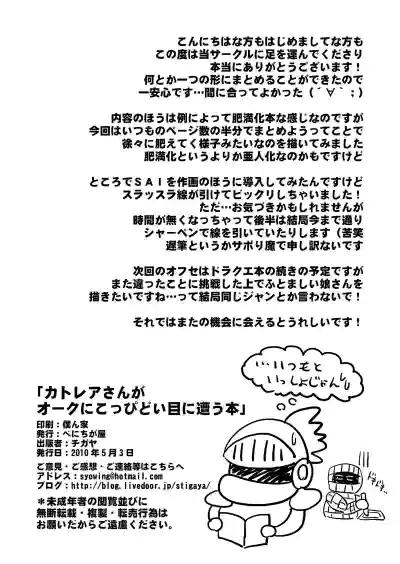 こんにちはな方もはじめましてな方も
この度は当サークルに足を運んでくださり
本当にありがとうございます！
何とか一つの形にまとめることができたので
一安心です…間に合ってよかった（´∀｀；）
内容のほうは例によって肥満化本な感じなのですが
今回はいつものページ数の半分でまとめようってことで
徐々に肥えてく様子みたいなのを描いてみました
肥満化というよりか亜人化なのかもですけど
ところでＳＡＩを作画のほうに導入してみたんですけど
スラッスラ線が引けてビックリしちゃいました！
ただ…お気づきかもしれませんが
時間が無くなっちゃって後半は結局今まで通り
シャーペンで線を引いていたりします（苦笑
遅筆というかサボり魔で申し訳ないです
次回のオフセはドラクエ本の続きの予定ですが
また違ったことに挑戦した上でふとましい娘さんを
描きたいですね…って結局同じジャンとか言わないで！
それではまたの機会に会えるとうれしいです！
…いつもと
いっしょじゃん…
「カトレアさんが
オークにこっぴどい目に遭う本」
印刷：僕ん家
発行：べにちが屋
出版者：チガヤ
発行日：2010年5月3日
ご意見・ご感想・ご連絡等はこちらへ
アドレス：syowing@hotmail.com
ブログ：http://blog.livedoor.jp/stigaya/
＊未成年者の閲覧並びに
無断転載・複製・転売行為は
お願いたからご遠慮ください。